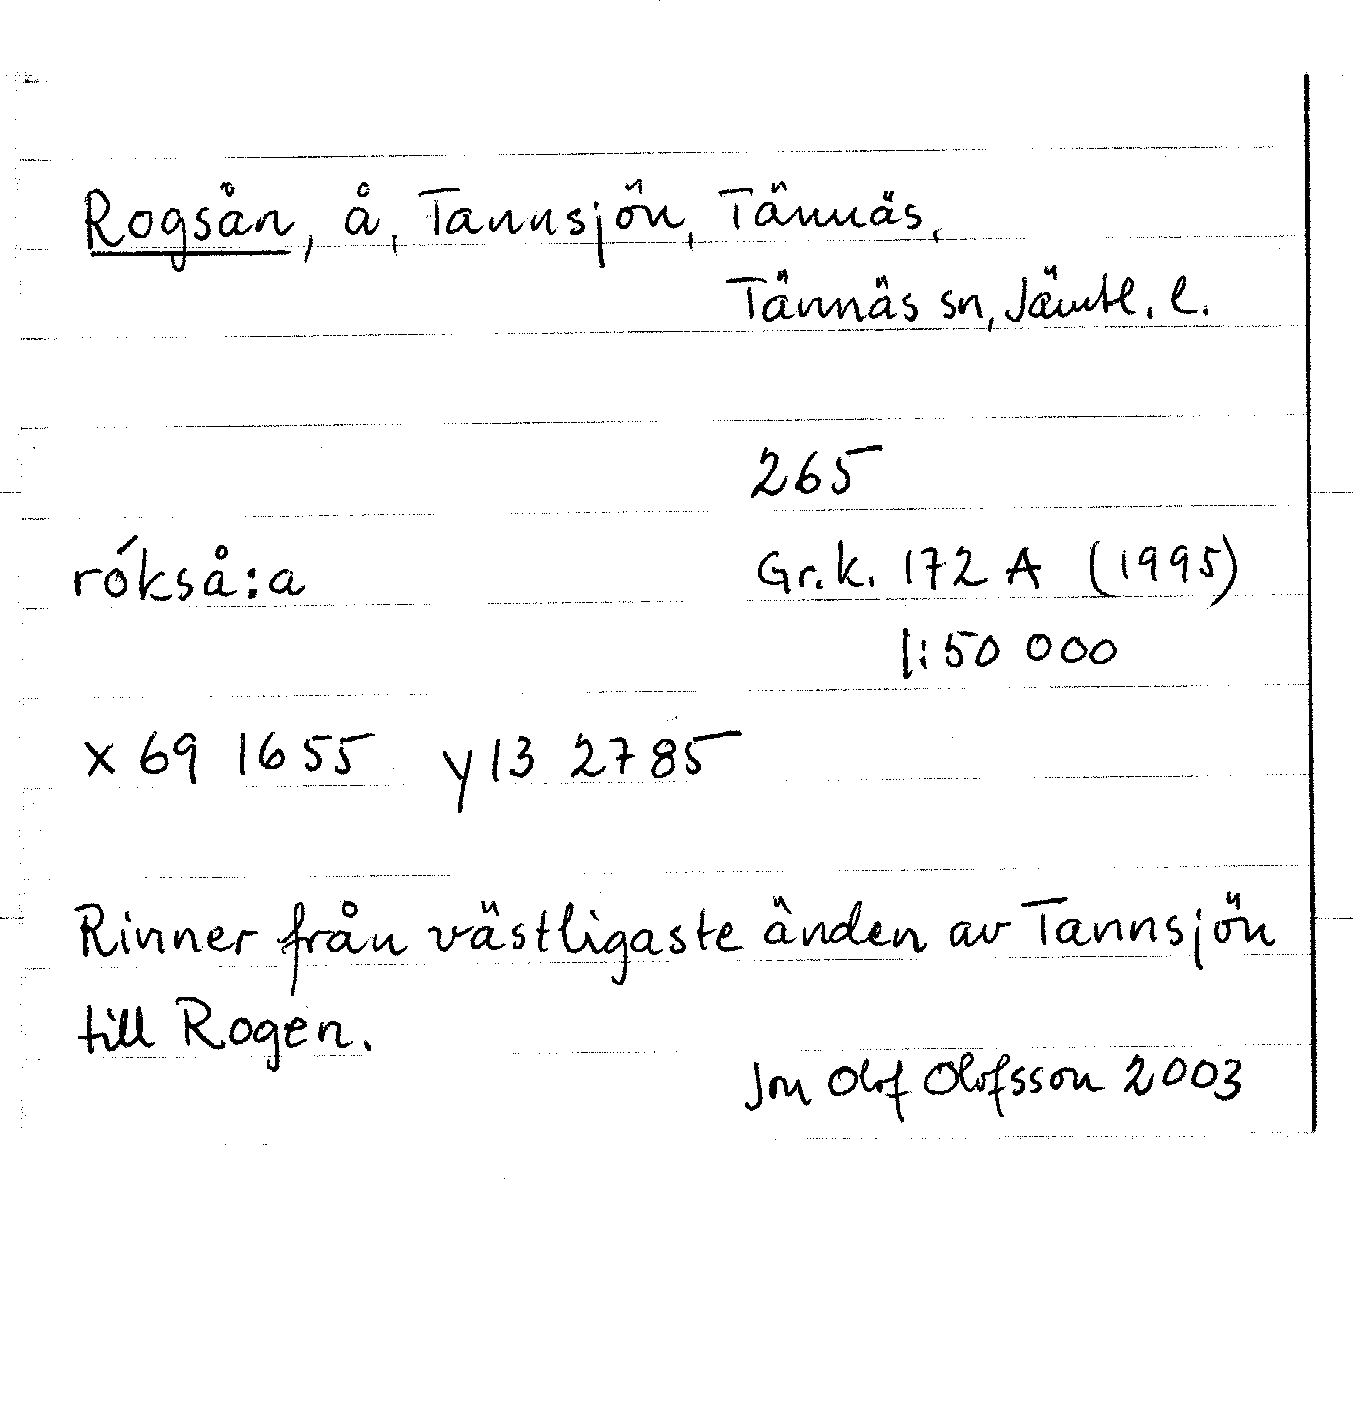 Rogsån, å, Tannsjön, Tännäs,
Tännäs sn, Jämtl. l.
265
rókså:a Gr.k. 172 A (1995)
1:50 000
x 69 1655 y 13 2785
Rinner från västligaste änden av Tannsjön
till Rogen.
Jon Olof Olofsson 2003